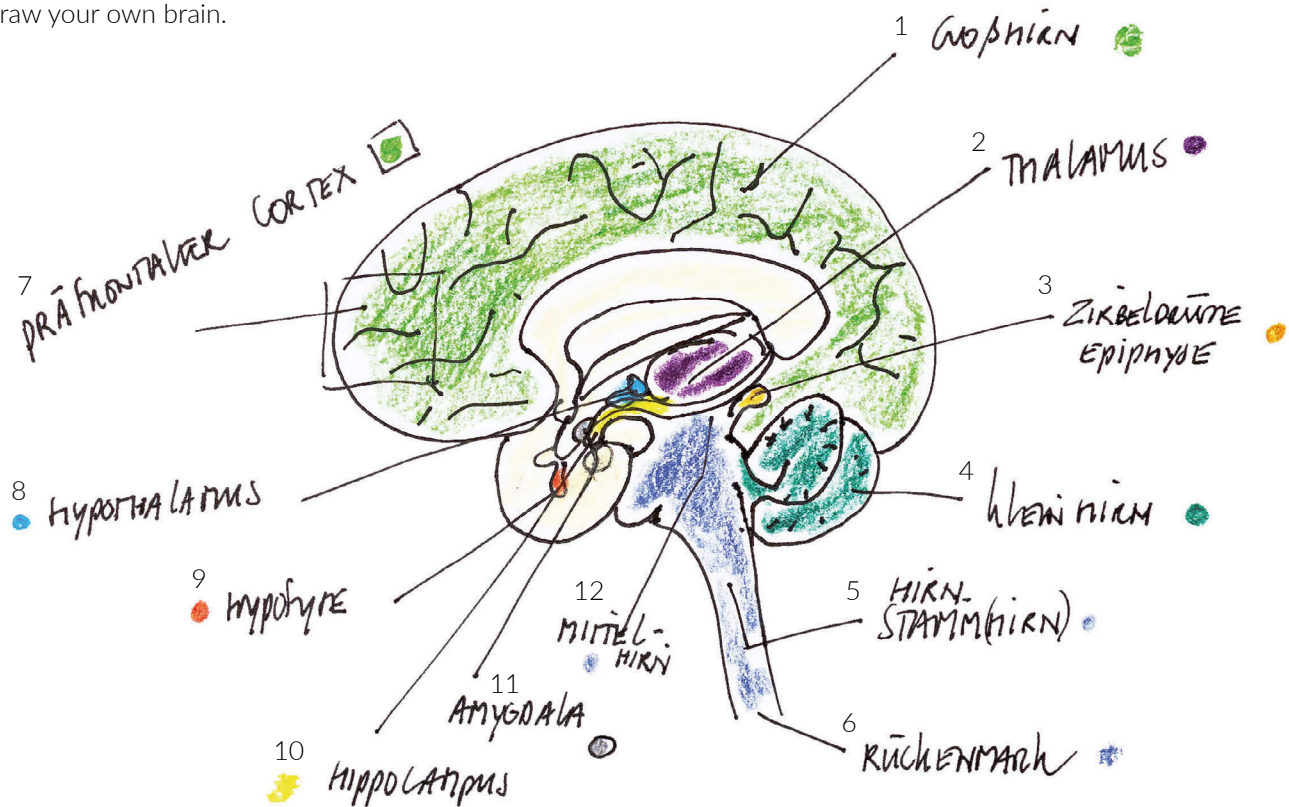 raw your own brain.
1 GROßHIRN
2 THALAMUS
3 ZIRBELDRÜSE
EPIPHYSE
4 KLEINHIRN
5 HIRN-
STAMM(HIRN)
6 RÜCKENMARK
7 PRÄFRONTALER CORTEX
8 HYPOTHALAMUS
9 HYPOPHYSE
10 HIPPOCAMPUS
11
AMYGDALA
12
MITTEL-
HIRN